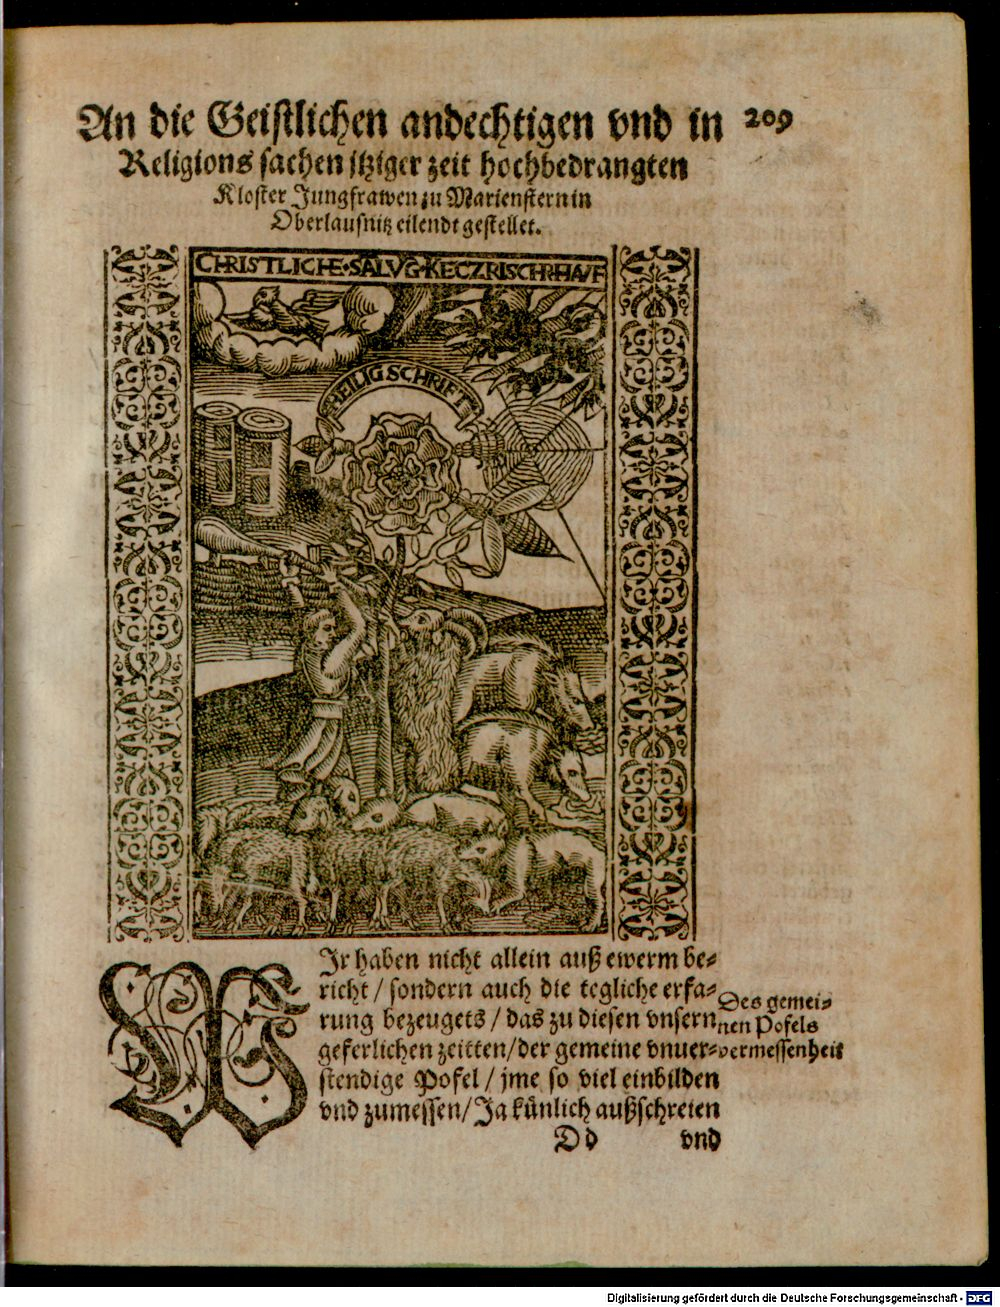 An die Geistlichen andechtigen vnd in 209
Religions sachen itziger zeit hochbedrangten
Kloster Jungfrawen zu Marienstern in
Oberlausnitz eilendt gestellet.
CHRISTLICHE·SALVG·KECZRISCHR·HAVF
HEILIG SCHRIFT
WIr haben nicht allein auß ewerm be⸗
richt / sondern auch die tegliche erfa⸗
rung bezeugets / das zu diesen vnsern
geferlichen zeitten / der gemeine vnuer⸗
stendige Pofel / jme so viel einbilden
vnd zumessen / Ja künlich außschreien
Des gemei⸗
nen Pofels
vermessenheit
Dd vnd
Digitalisierung gefördert durch die Deutsche Forschungsgemeinschaft - DFG